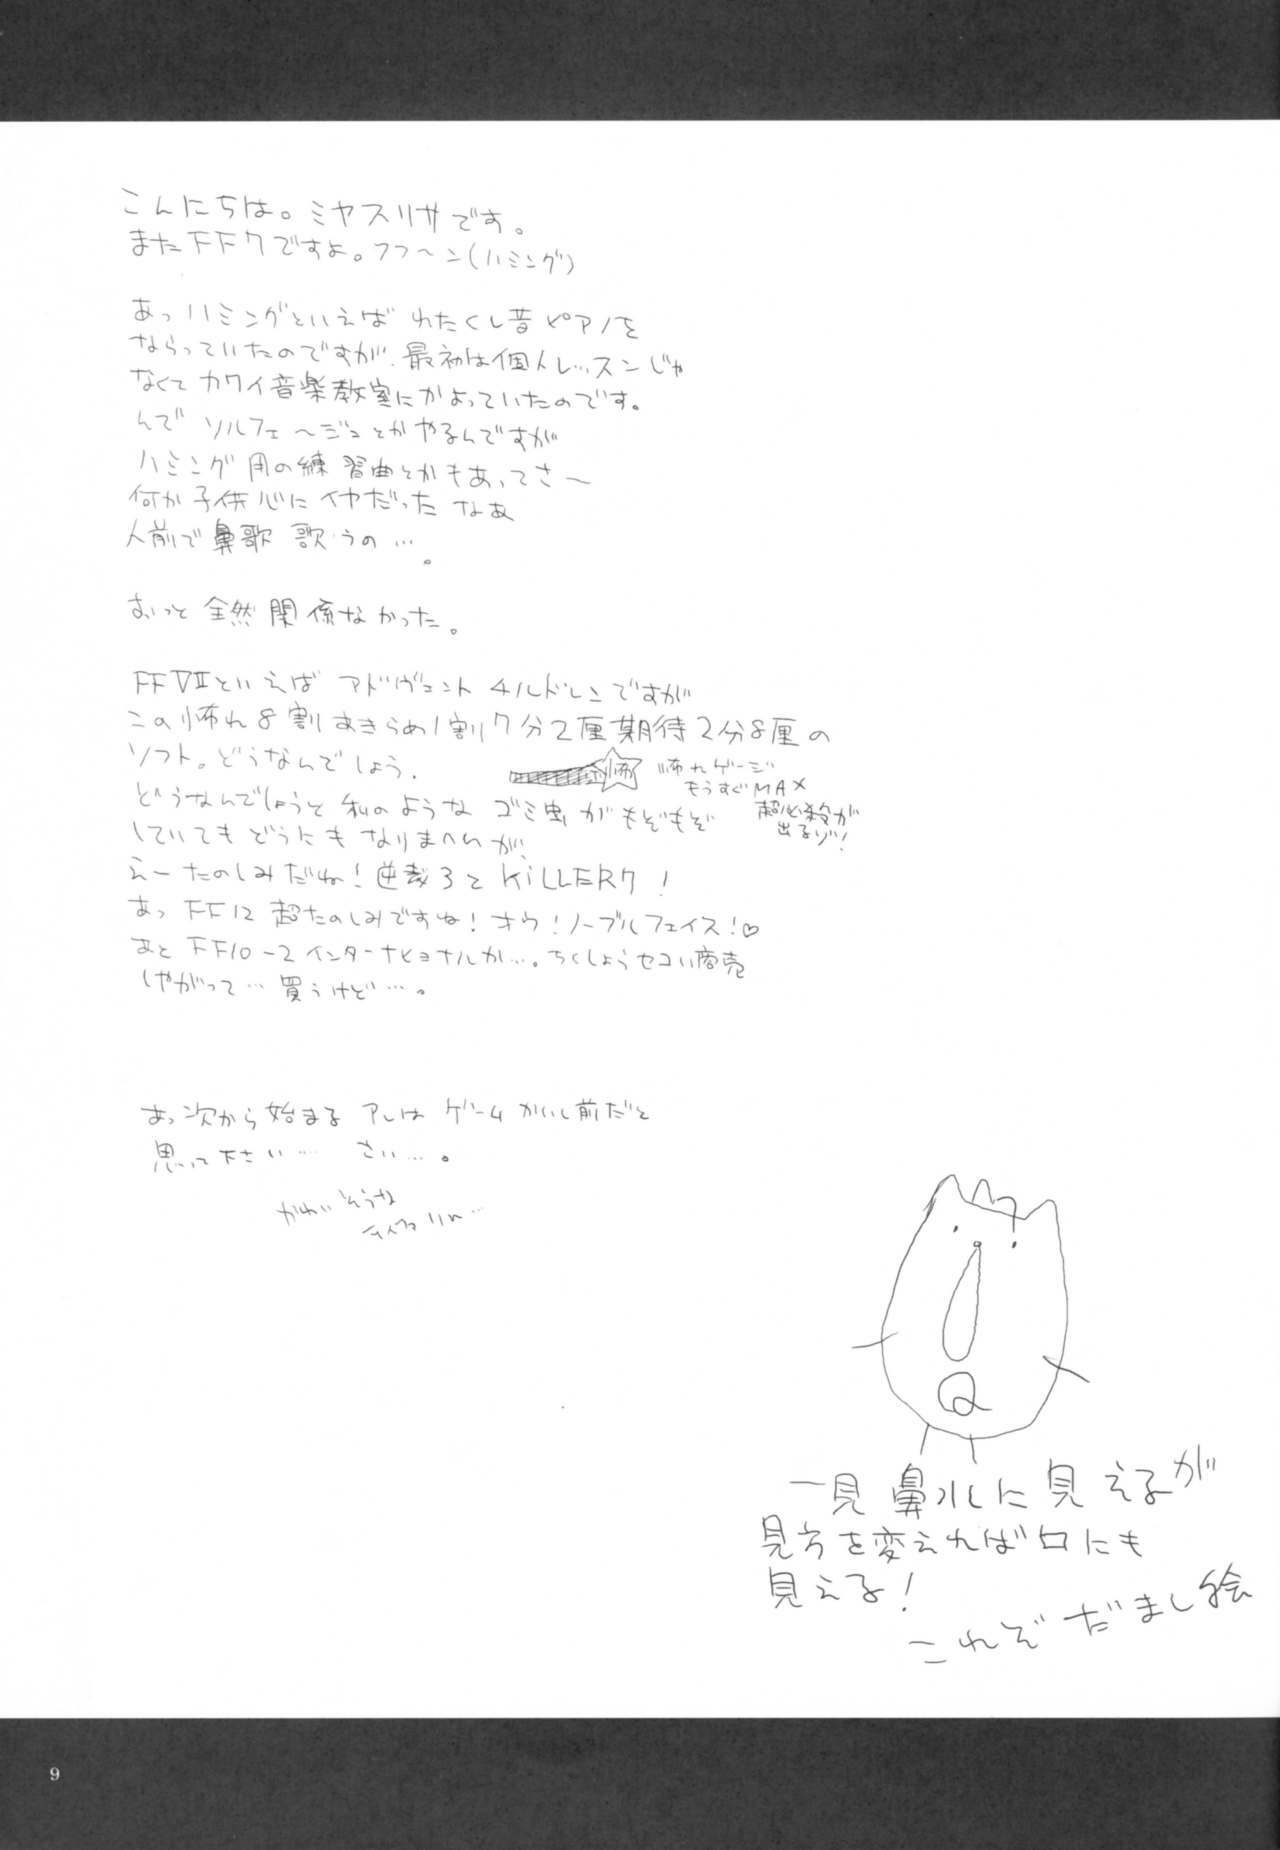 こんにちは。ミヤスリサです。
またFF7ですよ。フフ〜ン(ハミング)
あっハミングといえば わたくし昔ピアノを
ならっていたのですが、最初は個人レッスンじゃ
なくてカワイ音楽教室にかよっていたのです。
んで ソルフェ〜ジュとかやるんですが
ハミング用の練習曲とかもあってさ〜
何か子供心にイヤだったなぁ
人前で鼻歌 歌うの…。
おっと 全然関係なかった。
FFⅦといえば アドヴェントチルドレンですが
この怖れ8割あきらめ1割7分2厘期待2分8厘の
ソフト。どうなんでしょう。
怖
怖れゲージ
もうすぐMAX
超必殺が
出るゾ!
どうなんでしょうと 私のような ゴミ虫がもぞもぞ
していてもどうにもなりませんが、
えーたのしみだね!逆裁3とKiLLER7!
あっ FF12 超たのしみですね!オウ!ノーブルフェイス!♡
あと FF10-2インターナショナルか…。ちくしょうセコい商売
しやがって…買うけど…。
あっ次から始まる アレは ゲームかいし前だと
思って下さい… さい…。
かわいそうな
ティファ
一見鼻水に見えるが
見方を変えれば口にも
見える!
これぞだまし絵
9